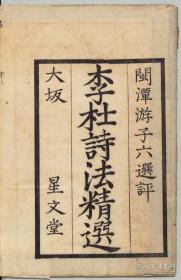 閩潭游子六選評
李杜詩法精選
大坂　星文堂